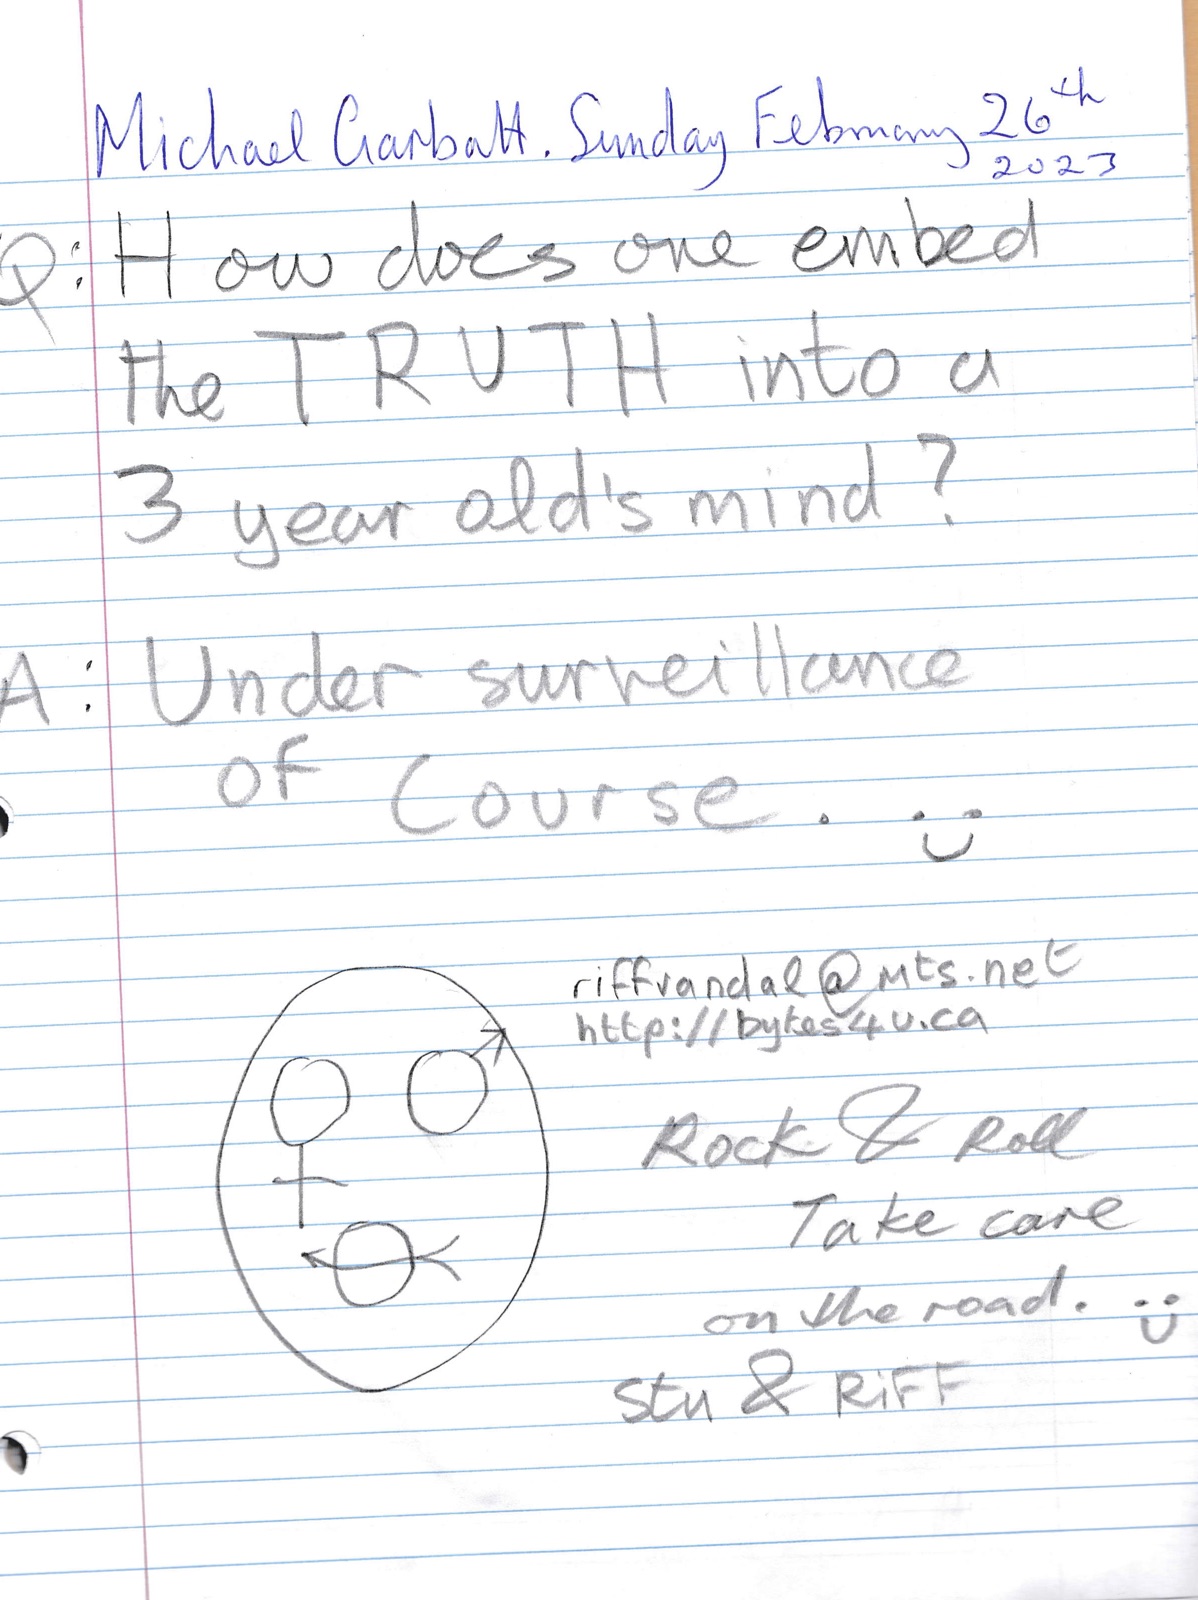 Michael Garbatt. Sunday February 26th
2023
Q: How does one embed
the TRUTH into a
3 year old's mind?
A: Under surveillance
of Course.
riffvandal@mts.net
http://bytes4u.ca
Rock & Roll
Take care
on the road.
Stu & RiFF